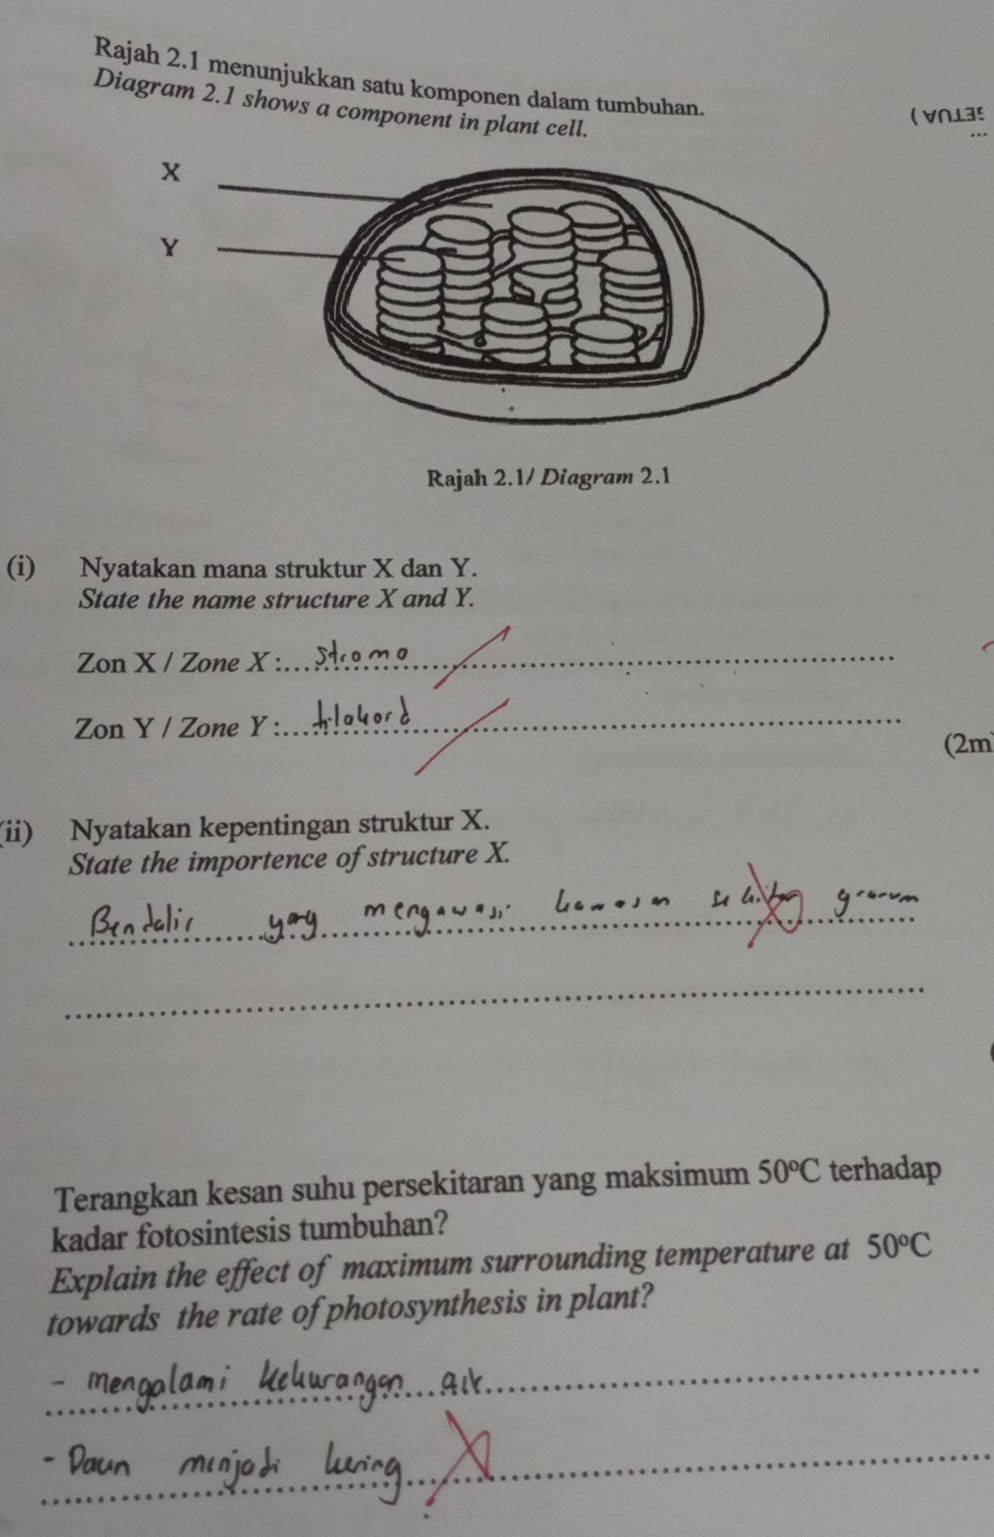 Rajah 2.1 menunjukkan satu komponen dalam tumbuhan.
Diagram 2.1 shows a component in plant cell.
SETUA )
X
Y
Rajah 2.1/ Diagram 2.1
(i) Nyatakan mana struktur X dan Y.
State the name structure X and Y.
Zon X / Zone X :.... stroma
Zon Y / Zone Y :.... tilakord
(2m)
(ii) Nyatakan kepentingan struktur X.
State the importence of structure X.
Bendalir yang mengawasi kawasan sekitar granum
Terangkan kesan suhu persekitaran yang maksimum 50°C terhadap
kadar fotosintesis tumbuhan?
Explain the effect of maximum surrounding temperature at 50°C
towards the rate of photosynthesis in plant?
- mengalami kekurangan air
- Daun menjadi kering